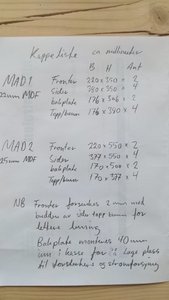 Kappeliste ca målboder
B H Ant
MAD 1 Fronter 220 x 350 x 2
22mm MDF Sider 380 x 350 x 4
bakplate 176 x 306 x 2
Topp/bunn 176 x 380 x 4
MAD 2 Fronter 220 x 550 x 2
25mm MDF Sider 377 x 550 x 4
bakplate 170 x 500 x 2
Topp/bunn 170 x 377 x 4
NB Fronter forsenkes 2mm med
bredden av sider topp bunn for
lettere liming
Bakplate monteres 40mm
inn i kasse for å lage plass
til forsterker og strømforsyning